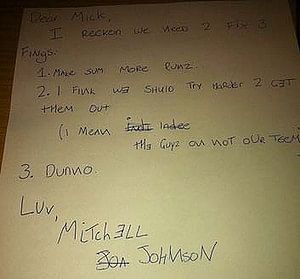 Dear Mick,
I Reckon we need 2 Fix 3
Fings.
1. Make sum more runz.
2. I Fink we shuld try Harder 2 GET
them out
(I mean Indee
the Guyz on not our team
3. Dunno.
Luv,
Mitchell
Jon Johnson